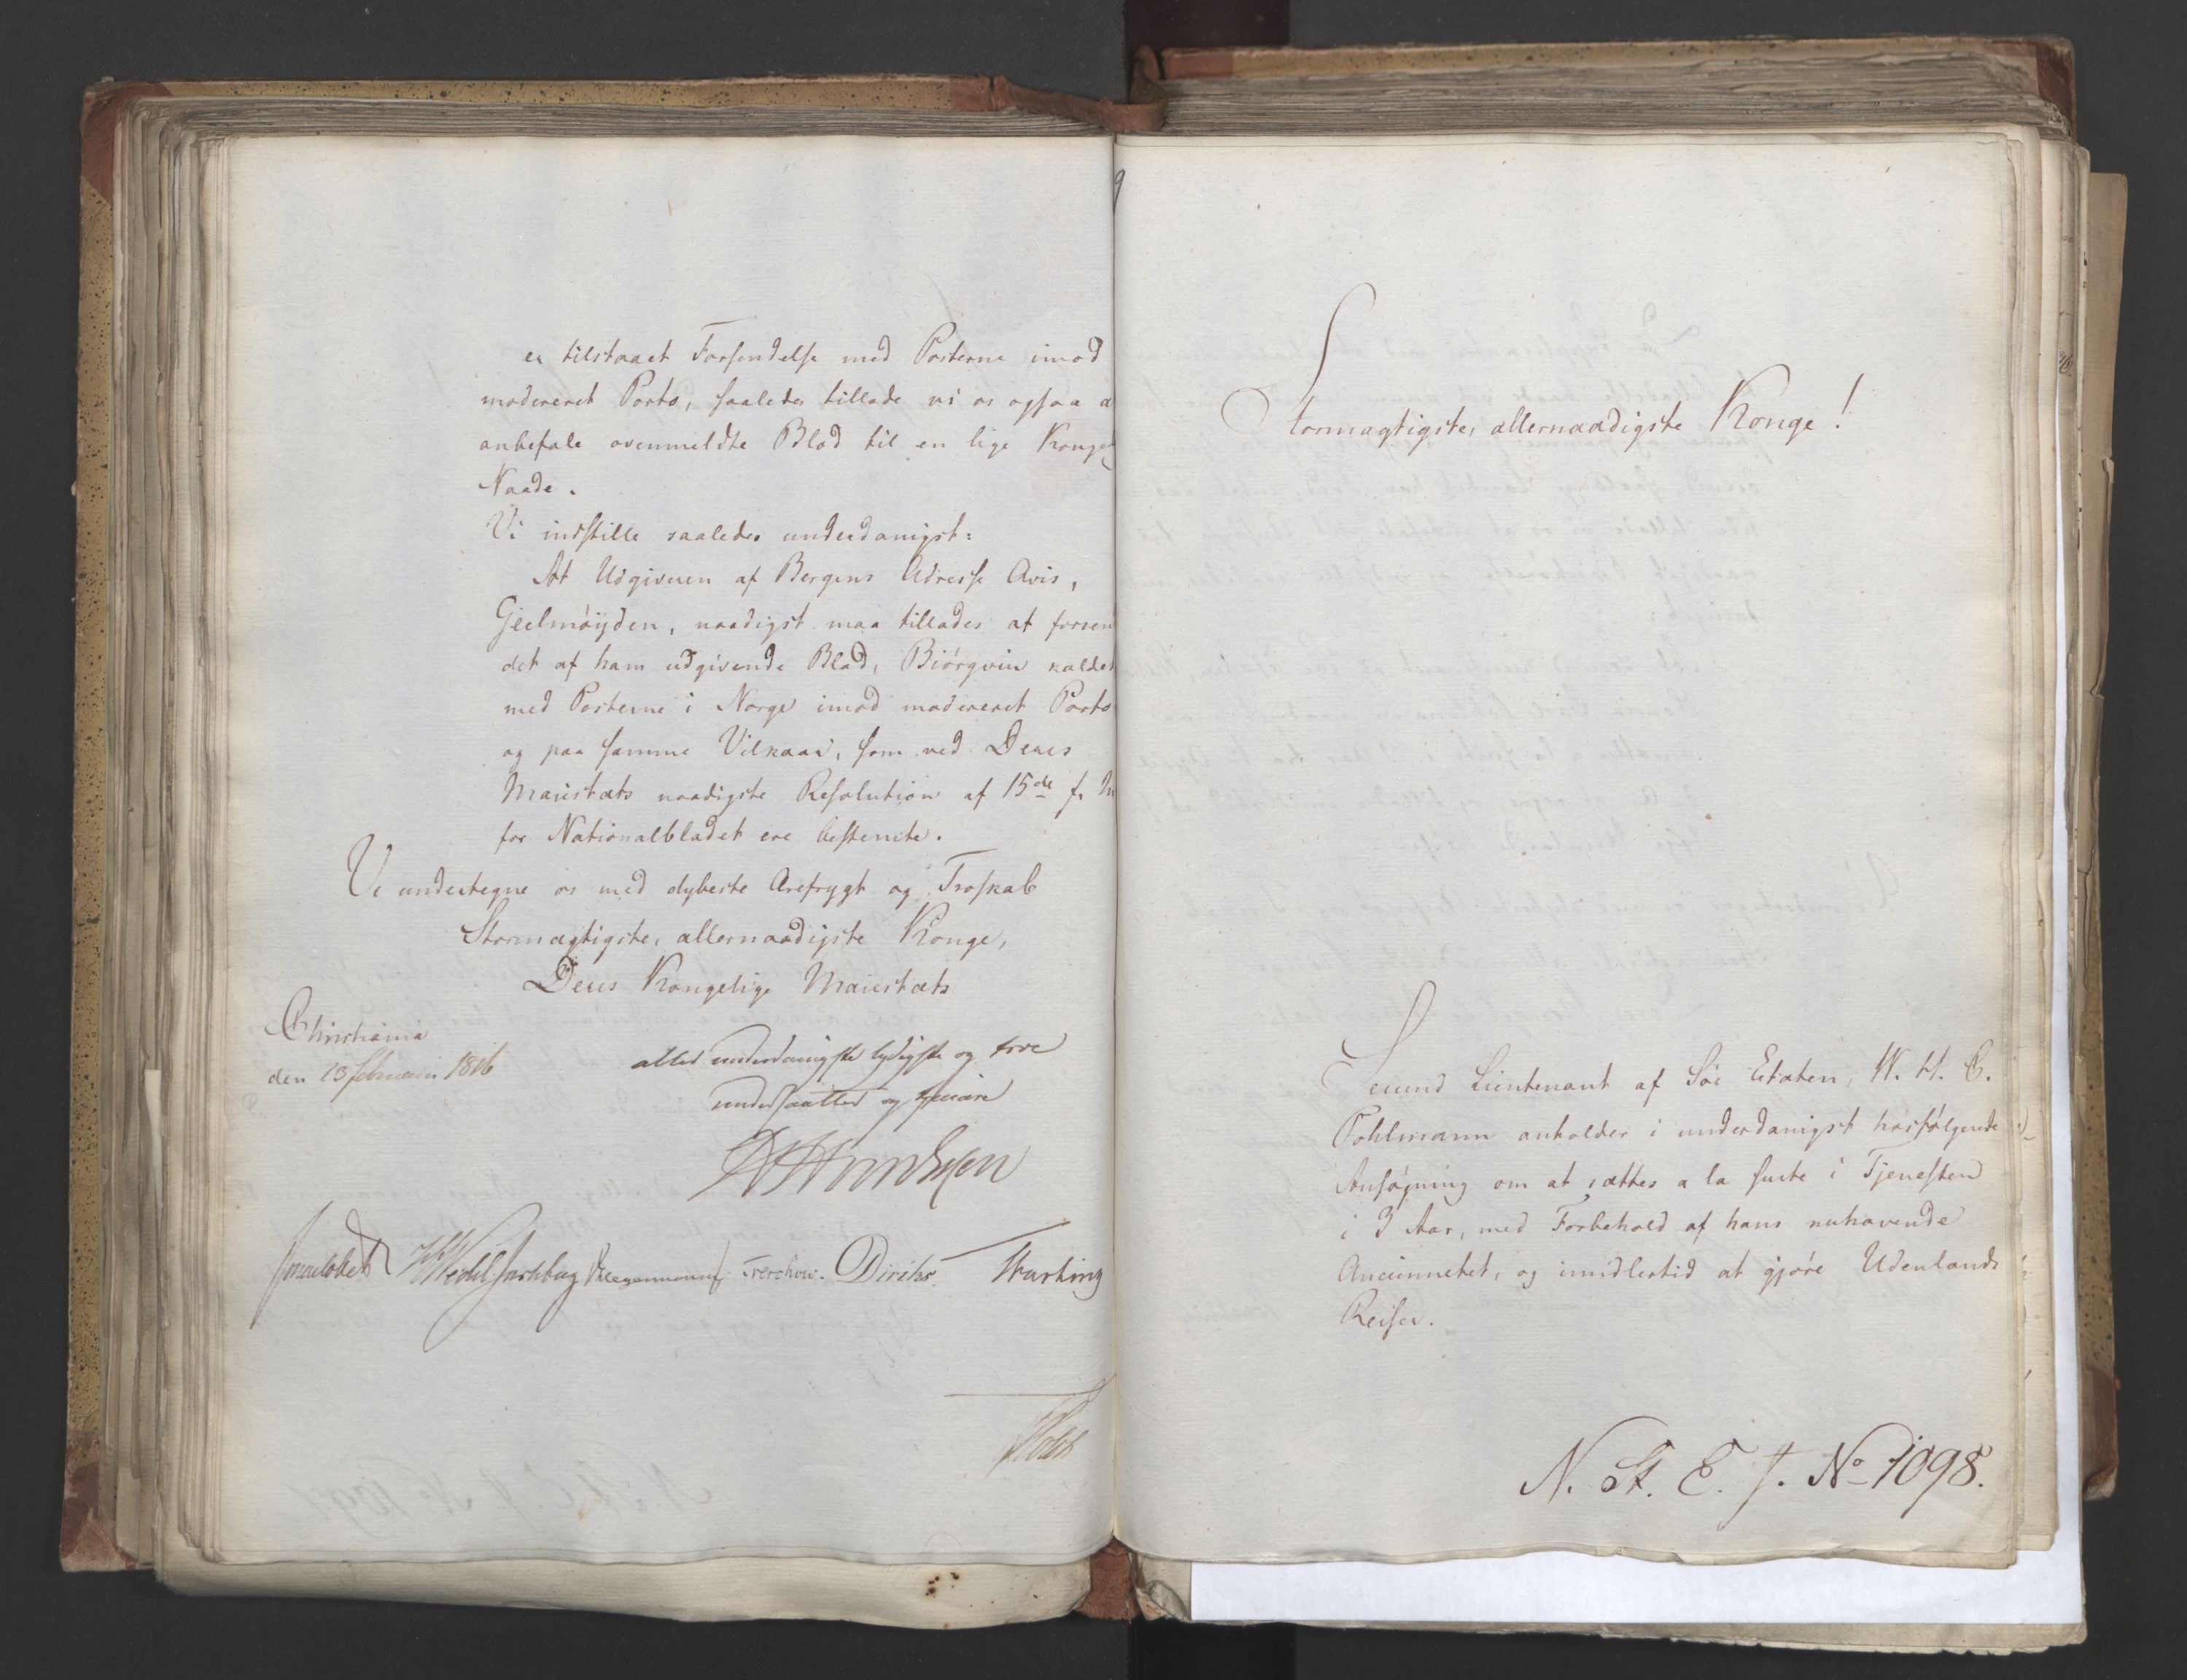 er tilstaaet Forsendelse med Posterne imod
modereret Porto, saaledes tillade vi os ogsaa a
anbefale ovenmeldte Blad til en lige Kongel
Naade.
Vi indstille saaledes underdanigst:
At Udgiveren af Bergens Adresse Avis,
Gjelmöyden, naadigst maa tillades at forsen
det af ham udgivende Blad, Biörgvin kaldet
med Posterne i Norge imod modereret Porto
og paa samme Vilkaar, som ved Deres
Maiestæts naadigste Resolution af 15de f. M
for Nationalbladet ere bestemte.
Vi undertegne os med dybeste Ærefrygt og Troskab
Stormægtigste, allernaadigste Konge,
Deres Kongelige Maiestæts
Christiania
den 23 februari 1816
allerunderdanigste lydigste og troe
undersaatter og tjenere
Sommerfeldt HWedel Jarlsberg DHegermann Treschow. Diriks. Krefting
Holst
Stormægtigste, allernaadigste Konge!
Secund Lieutenant af Söe Etaten, W. H. C.
Pohlmann anholder i underdanigst hosfölgende
Ansögning om at sættes a la suite i Tjenesten
i 3 Aar, med Forbehold af hans nuhavende
Anciennetet, og imidlertid at gjöre Udenlands
Reiser.
N. St. E. J. No 1098.